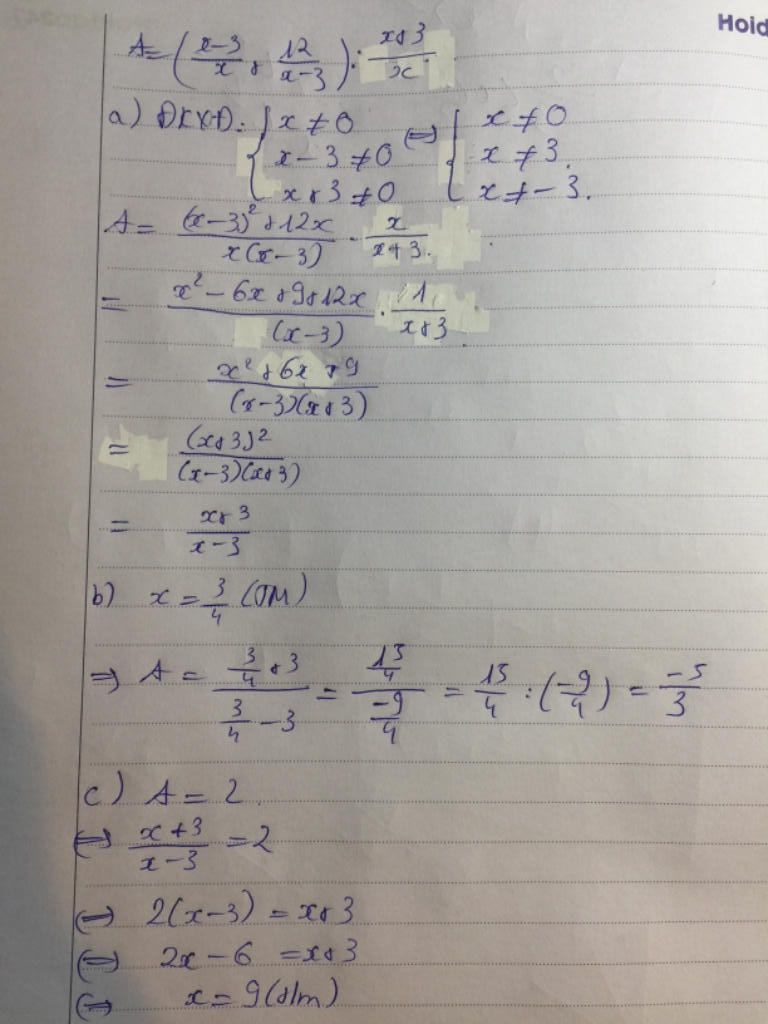 Hoid
A = (x-3/x + 12/x-3) : x+3/x
a) ĐKXĐ: { x ≠ 0 x - 3 ≠ 0 x + 3 ≠ 0 ⇔ { x ≠ 0 x ≠ 3. x ≠ -3.
A = (x-3)² + 12x / x(x-3) · x / x+3.
= x² - 6x + 9 + 12x / (x-3) · 1 / x+3.
= x² + 6x + 9 / (x-3)(x+3)
= (x+3)² / (x-3)(x+3)
= x+3 / x-3
b) x = 3/4 (TM)
⇒ A = 3/4 + 3 / 3/4 - 3 = 15/4 / -9/4 = 15/4 : (-9/4) = -5/3
c) A = 2.
⇔ x+3 / x-3 = 2
⇔ 2(x-3) = x+3
⇔ 2x - 6 = x+3
⇔ x = 9 (t/m)